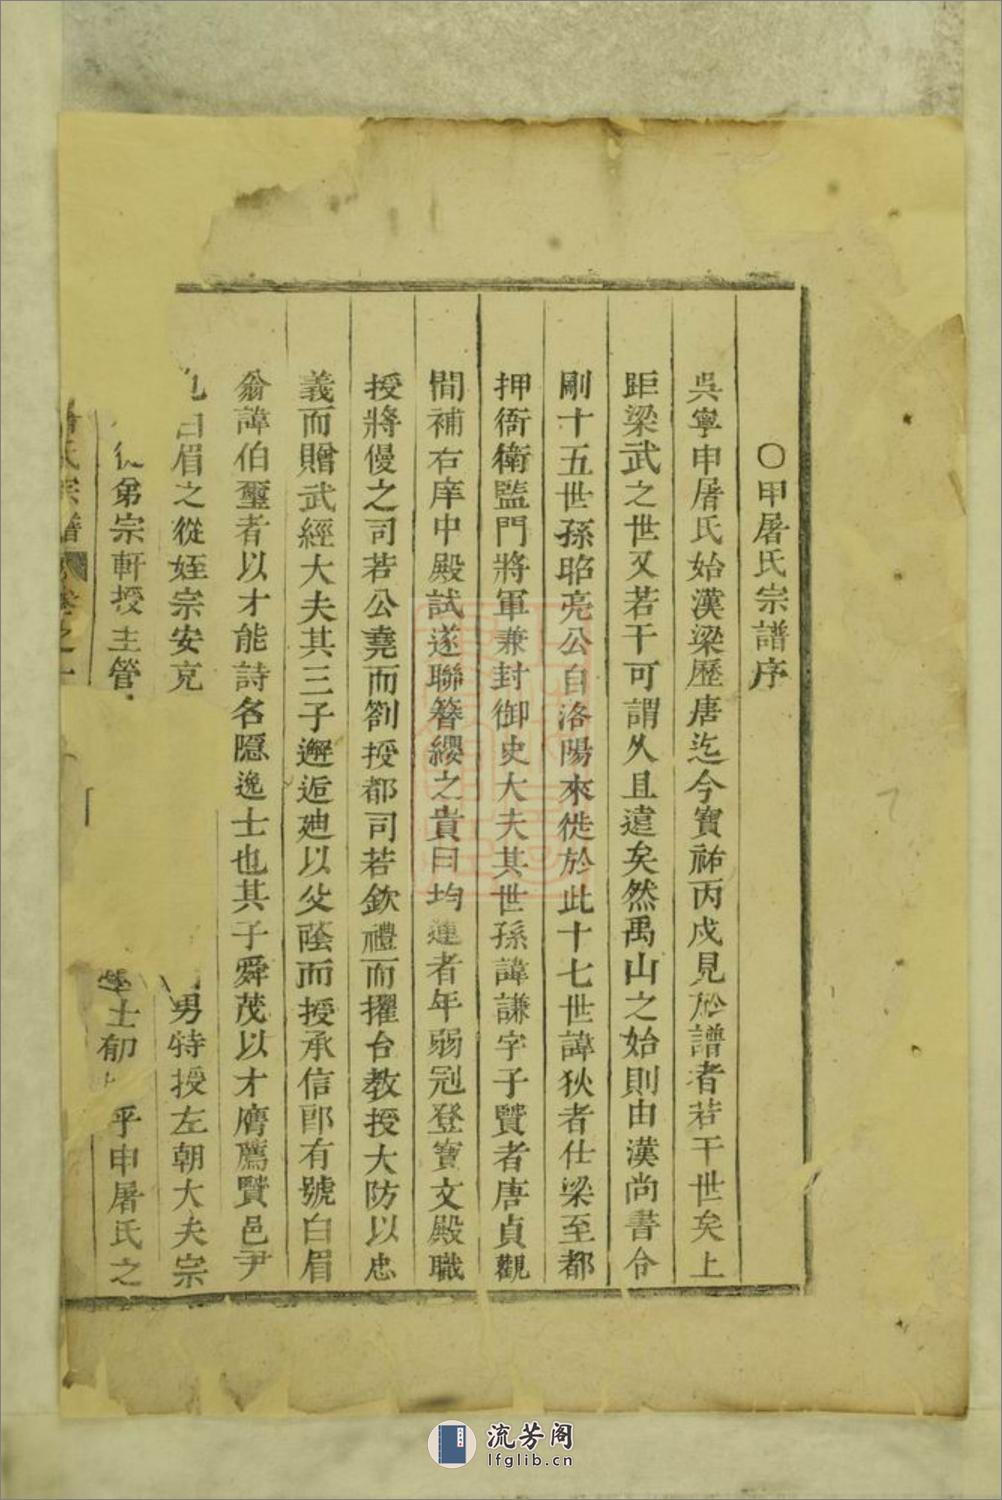 〇甲屠氏宗譜序
吳寧申屠氏始漢梁歷唐迄今寶祐丙戍見於譜者若干世矣上
距梁武之世又若干可謂久且遠矣然禹山之始則由漢尚書令
剛十五世孫昭亮公自洛陽來徙於此十七世諱狄者仕梁至都
押衙衛監門將軍兼封御史大夫其世孫諱謙字子賢者唐貞觀
間補右庠中殿試遂聯簪纓之貴曰均蓮者年弱冠登寶文殿職
授將優之司若公堯而劄授都司若欽禮而擢台教授大防以忠
義而贈武經大夫其三子邂逅廸以父蔭而授承信郎有號白眉
翁諱伯璽者以才能詩名隱逸士也其子舜茂以才膺薦賢邑尹
曰眉之從姪宗安克 男特授左朝大夫宗
弟宗軒授主管 士郁 乎申屠氏之
氏宗譜 卷之一
流芳阁
lfglib.cn